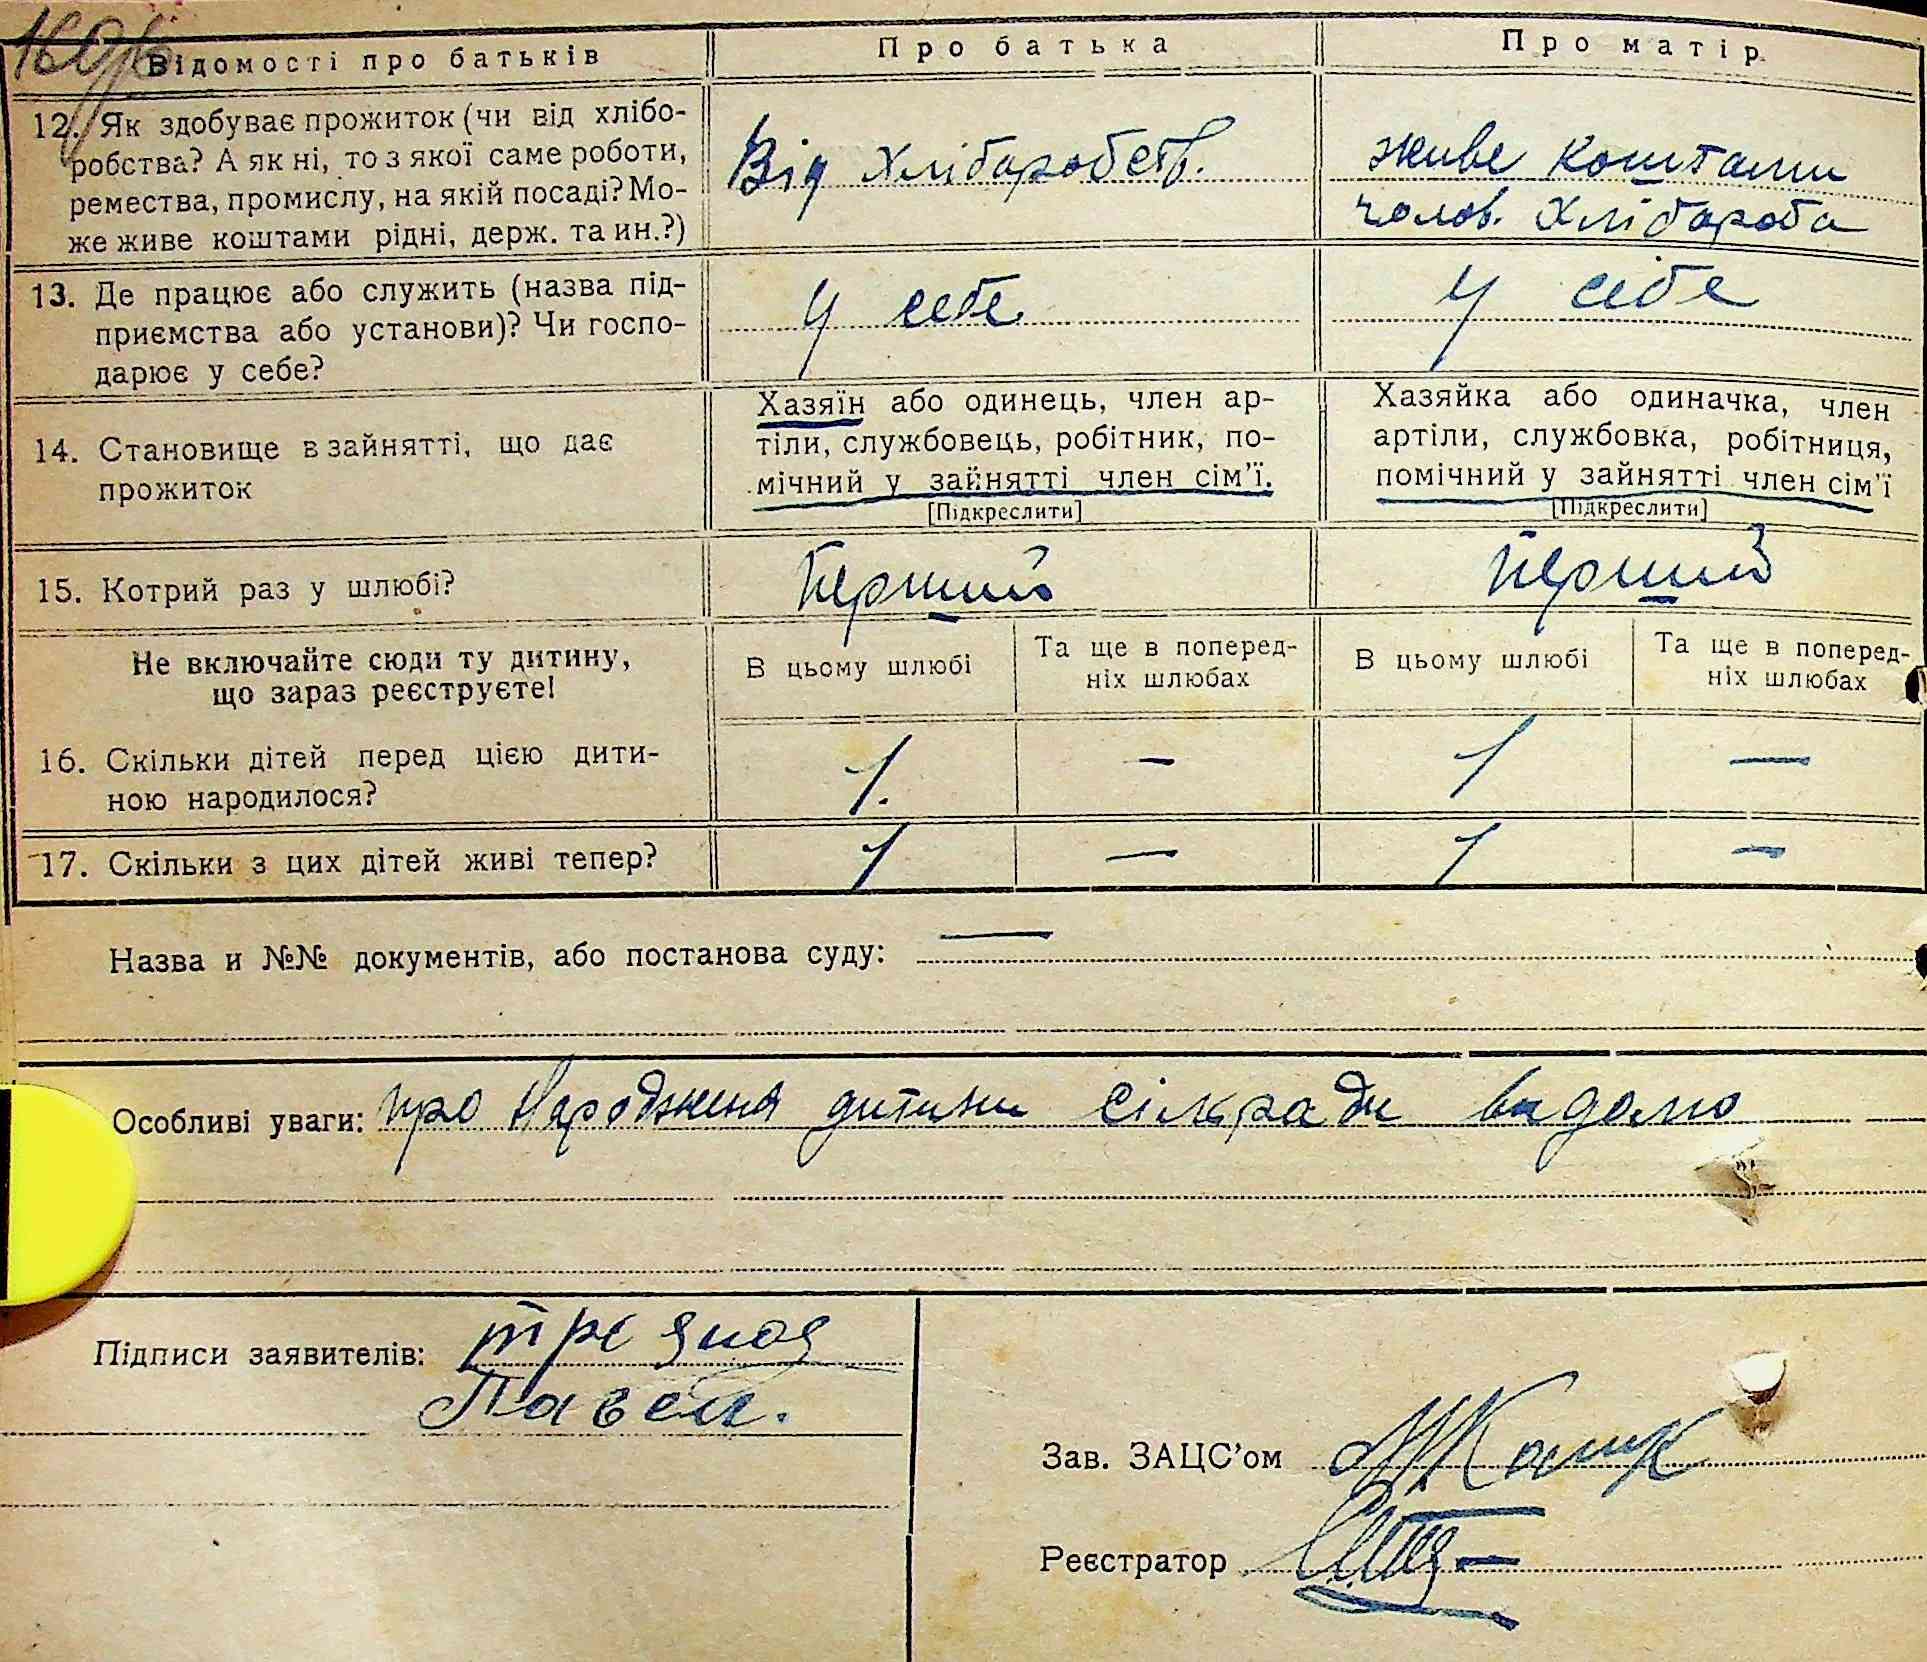 Відомості про батьків
Про батька
Про матір
12. Як здобуває прожиток (чи від хлібо-
робства? А як ні, то з якої саме роботи,
ремества, промислу, на якій посаді? Мо-
же живе коштами рідні, держ. та ин.?)
Від хлібаробств.
живе коштами
чолов. хлібароба
13. Де працює або служить (назва під-
приємства або установи)? Чи госпо-
дарює у себе?
у себе
у сібе
14. Становище в зайнятті, що дає
прожиток
Хазяїн або одинець, член ар-
тіли, службовець, робітник, по-
мічний у зайнятті член сім'ї.
[Підкреслити]
Хазяйка або одиначка, член
артіли, службовка, робітниця,
помічний у зайнятті член сім'ї
[Підкреслити]
15. Котрий раз у шлюбі?
Перший
Перший
Не включайте сюди ту дитину,
що зараз реєструєте!
В цьому шлюбі
Та ще в поперед-
ніх шлюбах
В цьому шлюбі
Та ще в поперед-
ніх шлюбах
16. Скільки дітей перед цією дити-
ною народилося?
1. — 1 —
17. Скільки з цих дітей живі тепер?
1 — 1 —
Назва и №№ документів, або постанова суду: —
Особливі уваги: про народженя дитини сілради видомо
Підписи заявителів:
Павел.
Зав. ЗАЦС'ом
Реєстратор